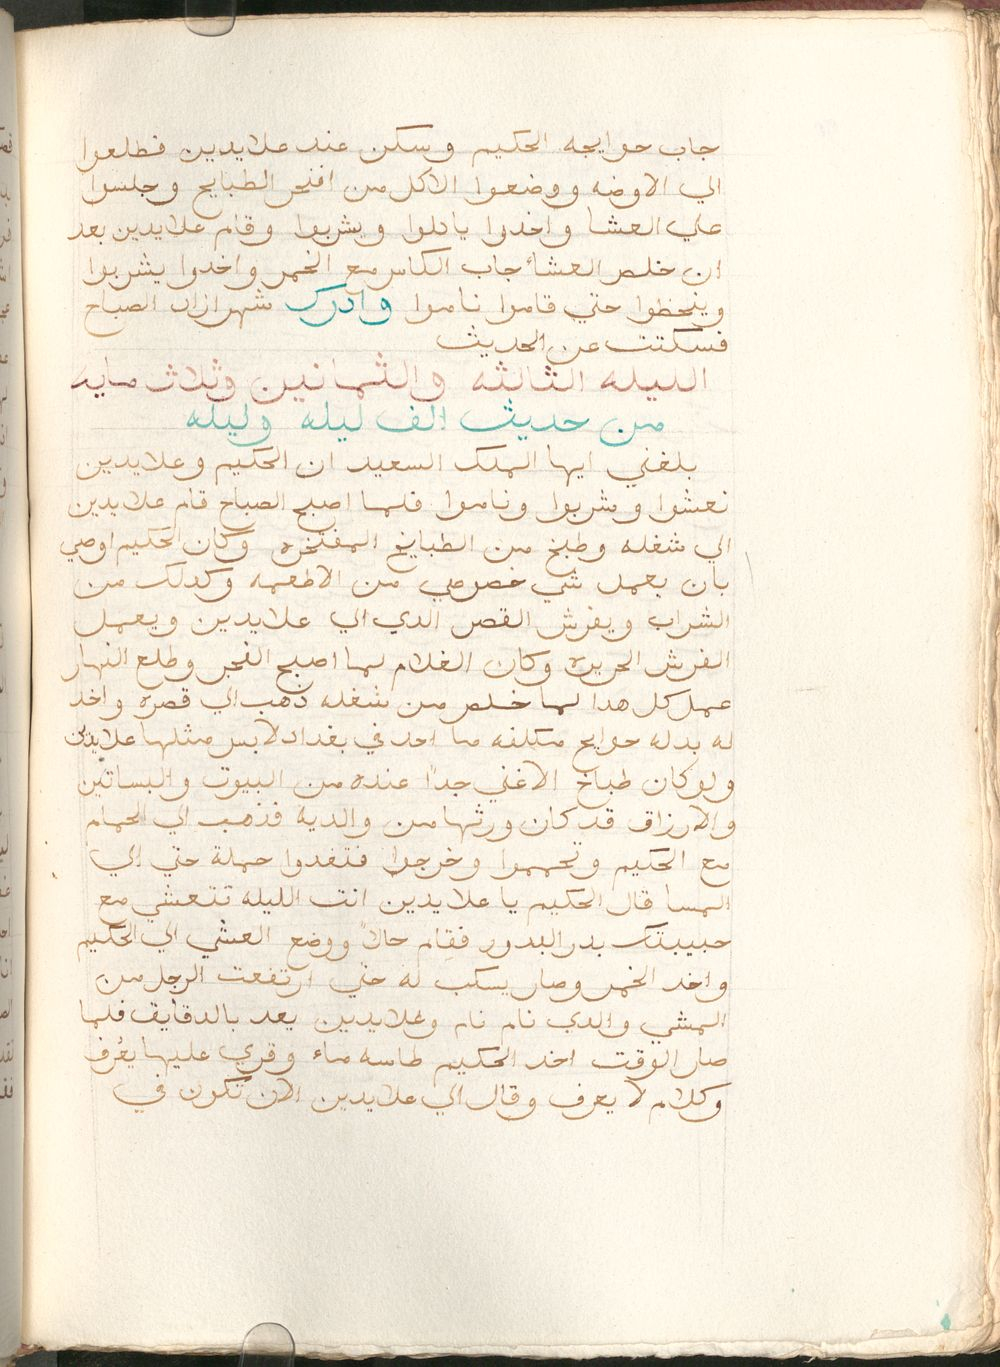 جاب حوايجه الحكيم وسكن عند علايدين فطلعوا
الي الاوضه ووضعوا الاكل من افخر الطبايخ وجلسوا
علي العشا واخدوا ياكلوا ويشربوا وقام علايدين بعد
ان خلص العشاء جاب الكاس مع الخمر واخدوا يشربوا
وينحظوا حتي قاموا ناموا وادرك شهرازاد الصباح
فسكتت عن الحديث
الليله الثالثه والثمانين وثلاث مايه
من حديث الف ليله وليله
بلغني ايها الملك السعيد ان الحكيم وعلايدين
تعشوا وشربوا وناموا فلما اصبح الصباح قام علايدين
الي شغله وطبخ من الطبايخ المفتخره وكان الحكيم اوصي
بان يعمل شي خصوصي من الاطعمه وكدلك من
الشراب ويفرش القصر الدي الي علايدين ويعمل
الفرش الحريره وكان الغلام لما اصبح الفجر وطلع النهار
عمل كل هدا لما خلص من شغله ذهب الي قصره واخد
له بدله حوايج متكلفه ما احد في بغداد لابس مثلها علايدين
ولو كان طباخ الا غني جدًا عنده من البيوت والبساتين
والارزاق قد كان ورثها من والديه فذهب الي الحمام
مع الحكيم وتحمموا وخرجوا فتغدوا جملة حتي الي
المسا قال الحكيم يا علايدين انت الليله تتعشي مع
حبيبتك بدر البدور فقام حالاً ووضع العشي الي الحكيم
واخد الخمر وصار يسكب له حتي ارتفعت الرجل من
المشي والدي نام نام وعلايدين يعد بالدقايق فلما
صار الوقت اخد الحكيم طاسه ماء وقري عليها يعُرف
وكلام لا يعرف وقال الي علايدين الان تكون في